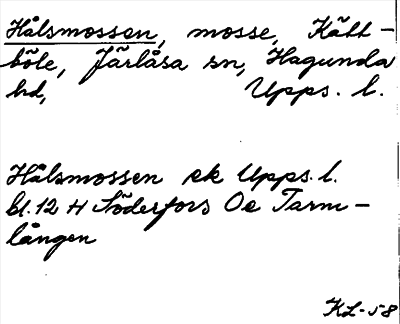 Hålsmossen, mosse, Kätt-
böle, Järlåsa sn, Hagunda
hd, Upps. l.
Hålsmossen ek Upps. l.
bl. 12 H Söderfors Oe Tarm-
lången
KL-58